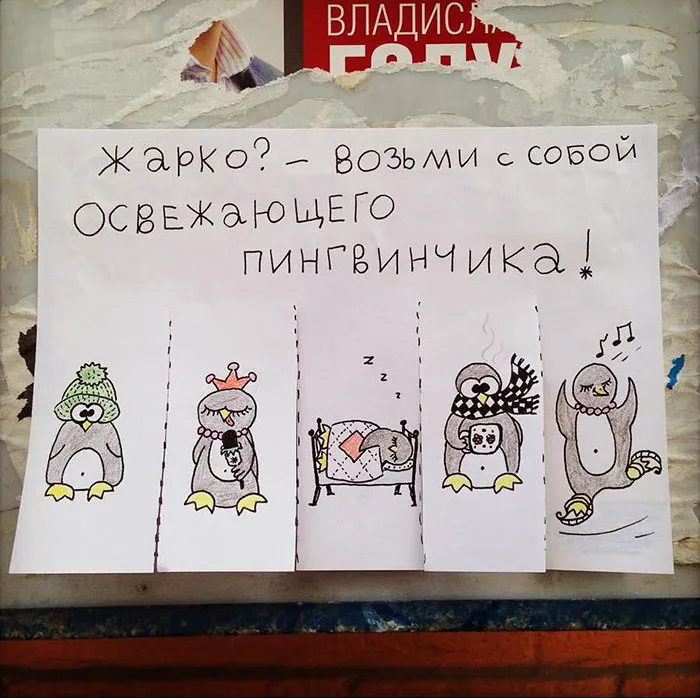 ВЛАДИСЛА
ГОДУ
Жарко? – возьми с собой
освежающего
пингвинчика!
z
z
z